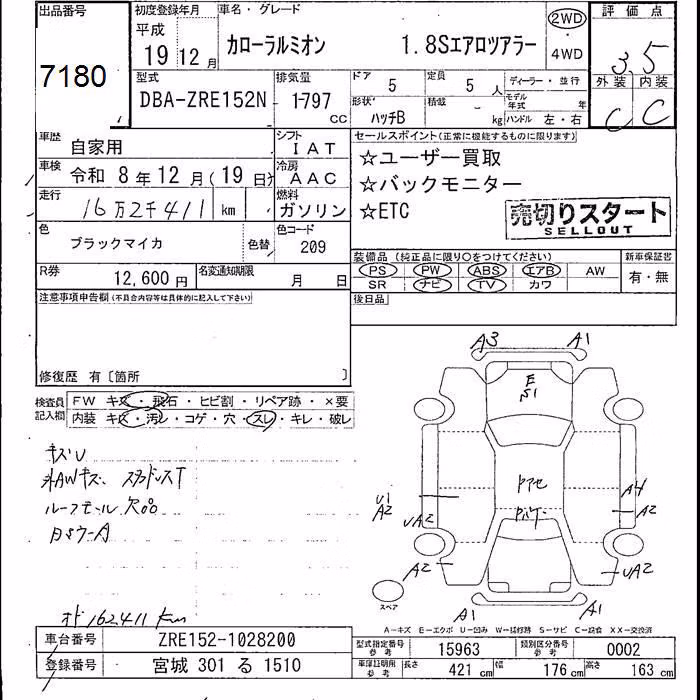 出品番号
7180
初度登録年月
平成
19年12月
車名・グレード
カローラルミオン 1.8Sエアロツアラー
2WD
・
4WD
評価点
3.5
外装 内装
C C
型式
DBA-ZRE152N
排気量
1-797
CC
ドア
5
定員
5 人
ディーラー・並行
形状
ハッチB
積載
kg
モデル年式
年
ハンドル 左・右
車歴
自家用
シフト
IAT
セールスポイント(正常に機能するものに限ります)
☆ユーザー買取
☆バックモニター
☆ETC
売切りスタート
SELLOUT
車検
令和 8年12月(19日)
冷房
AAC
走行
16万2千411km
燃料
ガソリン
色
ブラックマイカ
色替
色コード
209
装備品(純正品に限り○をつけてください)
新車保証書
PS PW ABS エアB AW
SR ナビ TV カワ
有・無
R券
12,600円
名変通知期限
月 日
後日品
注意事項申告欄(不具合内容等は具体的に記入して下さい)
修復歴 有〔箇所 〕
検査員記入欄
FW キズ・飛石・ヒビ割・リペア跡・×要
内装 キズ・汚レ・コゲ・穴・スレ・キレ・破レ
キズU
ルーフモール欠品
162411 km
A3 A1
E
S1
U1
A2
UA2
A4
A2
A2
UA2
スペア
A1 A1
A-キズ E-エクボ U-凹み W-補修跡 S-サビ C-腐食 XX-交換済
車台番号
ZRE152-1028200
登録番号
宮城 301 る 1510
型式指定番号
参考
15963
類別区分番号
参考
0002
車庫証明用
参考
長さ 421 cm
幅 176 cm
高さ 163 cm